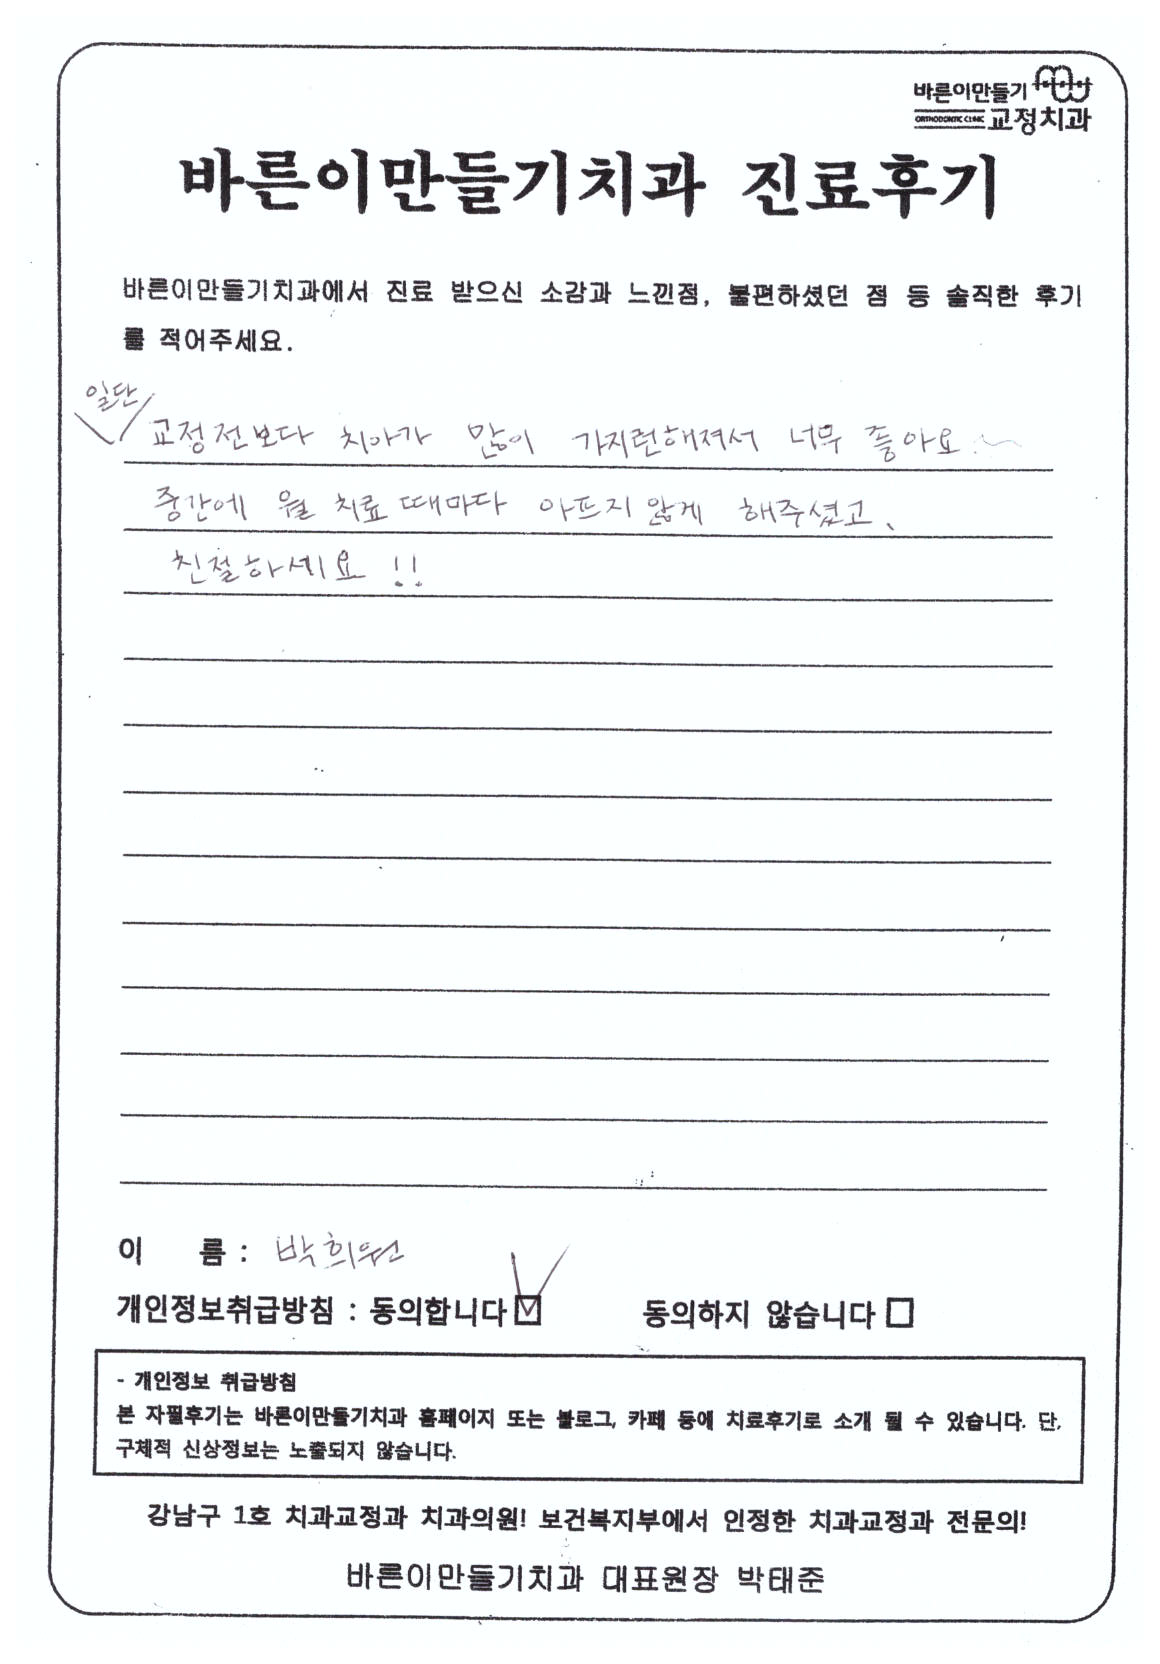 바른이만들기
ORTHODONTIC CLINIC 교정치과
바른이만들기치과 진료후기
바른이만들기치과에서 진료 받으신 소감과 느낀점, 불편하셨던 점 등 솔직한 후기
를 적어주세요.
일단
교정전보다 치아가 많이 가지런해져서 너무 좋아요~
중간에 월 치료 때마다 아프지 않게 해주셨고,
친절하세요 !!
이 름 : 박희원
개인정보취급방침 : 동의합니다 동의하지 않습니다
- 개인정보 취급방침
본 자필후기는 바른이만들기치과 홈페이지 또는 블로그, 카페 등에 치료후기로 소개 될 수 있습니다. 단,
구체적 신상정보는 노출되지 않습니다.
강남구 1호 치과교정과 치과의원! 보건복지부에서 인정한 치과교정과 전문의!
바른이만들기치과 대표원장 박태준